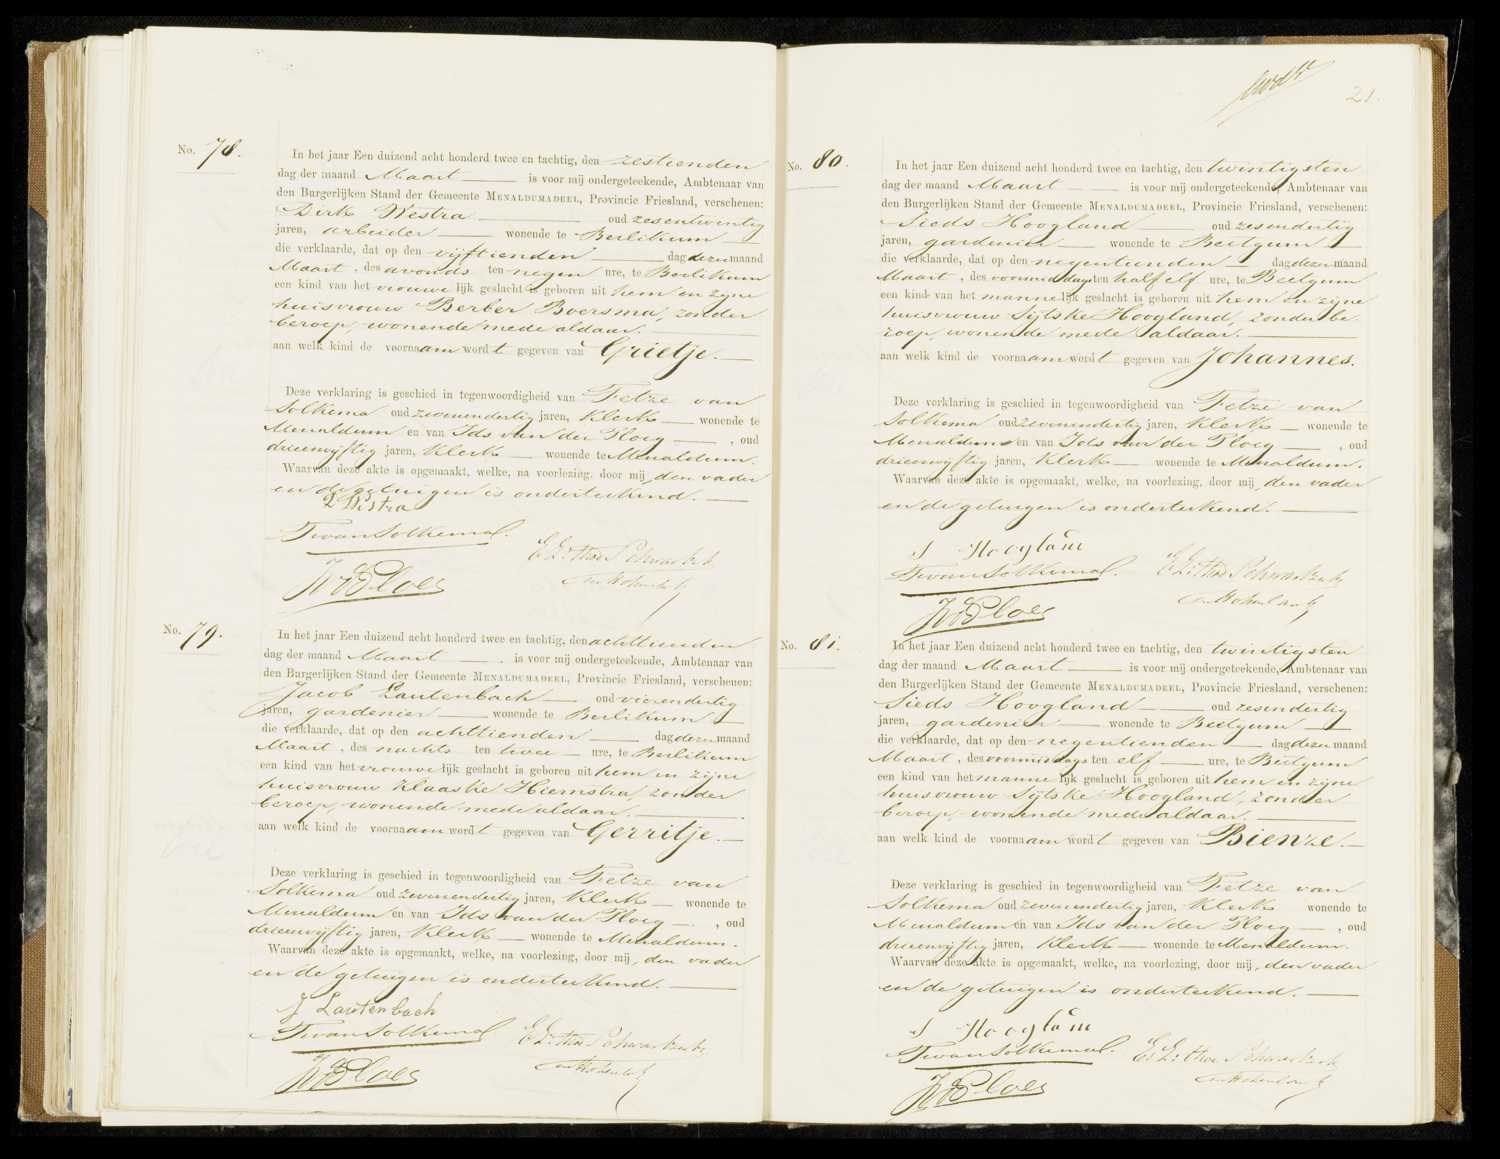 No. 78.
In het jaar Een duizend acht honderd twee en tachtig, den zestienden
dag der maand Maart is voor mij ondergeteekende, Ambtenaar van
den Burgerlijken Stand der Gemeente MENALDUMADEEL, Provincie Friesland, verschenen:
Dirk Westra oud zesentwintig
jaren, arbeider wonende te Berlikum
die verklaarde, dat op den vijftienden dag dezer maand
Maart, des avonds ten negen ure, te Berlikum
een kind van het vrouwelijk geslacht is geboren uit hem en zijne
huisvrouw Berber Boersma, zonder
beroep, wonende mede aldaar.
aan welk kind de voornaam wordt gegeven van Grietje.
Deze verklaring is geschied in tegenwoordigheid van Fetze van
Solkema oud zevenendertig jaren, Klerk wonende te
Menaldum en van Ids van der Ploeg, oud
drieenvijftig jaren, Klerk wonende te Menaldum.
Waarvan deze akte is opgemaakt, welke, na voorlezing, door mij, den vader
en de getuigen is onderteekend.
D Westra
F van Solkema.
I v d Ploeg
No. 79.
In het jaar Een duizend acht honderd twee en tachtig, den achttienden
dag der maand Maart is voor mij ondergeteekende, Ambtenaar van
den Burgerlijken Stand der Gemeente MENALDUMADEEL, Provincie Friesland, verschenen:
Jacob Lautenbach oud vierendertig
jaren, gardenier wonende te Berlikum
die verklaarde, dat op den achttienden dag dezer maand
Maart, des nachts ten twee ure, te Berlikum
een kind van het vrouwelijk geslacht is geboren uit hem en zijne
huisvrouw Klaaske Hiemstra, zonder
beroep, wonende mede aldaar.
aan welk kind de voornaam wordt gegeven van Gerritje.
Deze verklaring is geschied in tegenwoordigheid van Fetze van
Solkema oud zevenendertig jaren, Klerk wonende te
Menaldum en van Ids van der Ploeg, oud
drieenvijftig jaren, Klerk wonende te Menaldum.
Waarvan deze akte is opgemaakt, welke, na voorlezing, door mij, den vader
en de getuigen is onderteekend.
J Lautenbach
F van Solkema
I v d Ploeg
21.
No. 80.
In het jaar Een duizend acht honderd twee en tachtig, den twintigsten
dag der maand Maart is voor mij ondergeteekende, Ambtenaar van
den Burgerlijken Stand der Gemeente MENALDUMADEEL, Provincie Friesland, verschenen:
Sieds Hoogland oud zesendertig
jaren, gardenier wonende te Beetgum
die verklaarde, dat op den negentienden dag dezer maand
Maart, des voormiddags ten half elf ure, te Beetgum
een kind van het mannelijk geslacht is geboren uit hem en zijne
huisvrouw Sijtske Hoogland, zonder be-
roep, wonende mede aldaar.
aan welk kind de voornaam wordt gegeven van Johannes.
Deze verklaring is geschied in tegenwoordigheid van Fetze van
Solkema oud zevenendertig jaren, Klerk wonende te
Menaldum en van Ids van der Ploeg, oud
drieenvijftig jaren, Klerk wonende te Menaldum.
Waarvan deze akte is opgemaakt, welke, na voorlezing, door mij, den vader
en de getuigen is onderteekend.
S Hooglan
F van Solkema.
I v d Ploeg
No. 81.
In het jaar Een duizend acht honderd twee en tachtig, den twintigsten
dag der maand Maart is voor mij ondergeteekende, Ambtenaar van
den Burgerlijken Stand der Gemeente MENALDUMADEEL, Provincie Friesland, verschenen:
Sieds Hoogland oud zesendertig
jaren, gardenier wonende te Beetgum
die verklaarde, dat op den negentienden dag dezer maand
Maart, des voormiddags ten elf ure, te Beetgum
een kind van het mannelijk geslacht is geboren uit hem en zijne
huisvrouw Sijtske Hoogland, zonder
beroep, wonende mede aldaar.
aan welk kind de voornaam wordt gegeven van Bienze.
Deze verklaring is geschied in tegenwoordigheid van Fetze van
Solkema oud zevenendertig jaren, Klerk wonende te
Menaldum en van Ids van der Ploeg, oud
drieenvijftig jaren, Klerk wonende te Menaldum.
Waarvan deze akte is opgemaakt, welke, na voorlezing, door mij, den vader
en de getuigen is onderteekend.
S Hooglan
F van Solkema.
I v d Ploeg